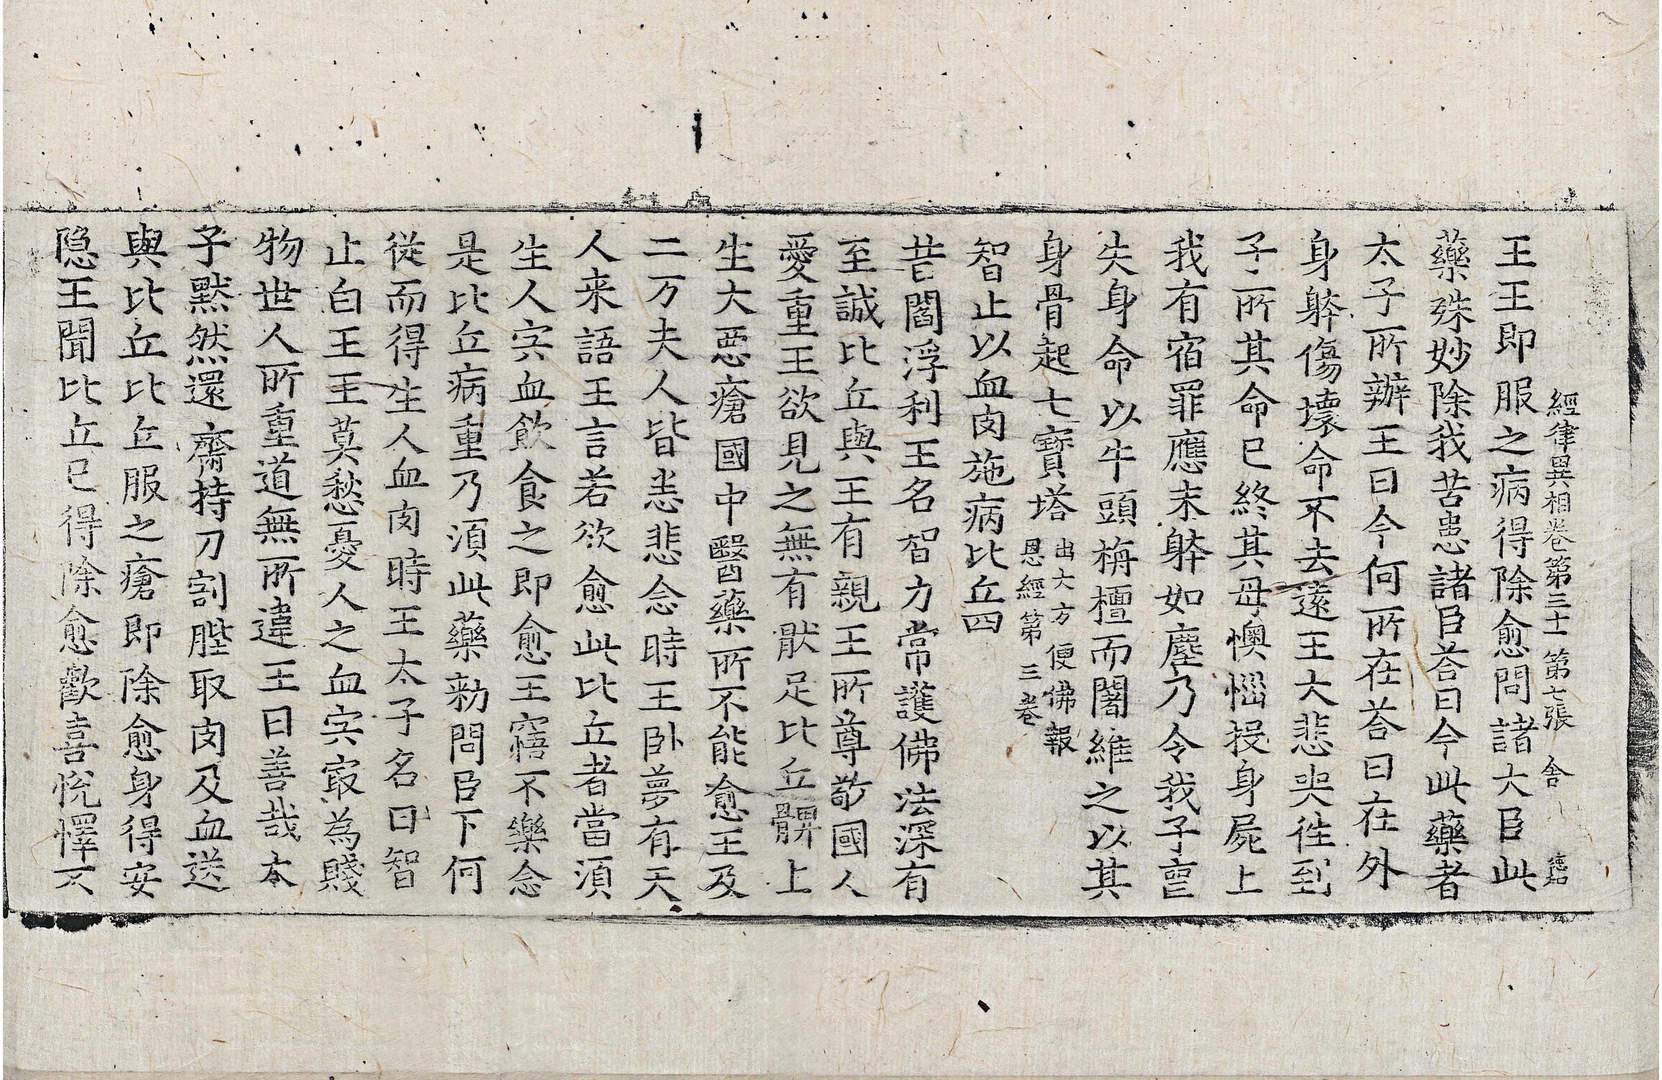 經律異相卷第三十一 第七張 舍
王王即服之病得除愈問諸大臣此
藥殊妙除我苦患諸臣荅曰今此藥者
太子所辦王曰今何所在荅曰在外
身躰傷壞命不去遠王大悲哭往到
子所其命已終其母懊惱投身屍上
我有宿罪應末躰如塵乃令我子
失身命以牛頭栴檀而闍維之以其
身骨起七寶塔 出大方便佛報
恩經第三卷
智止以血肉施病比丘四
昔閻浮利王名智力常護佛法深有
至誠比丘與王有親王所尊敬國人
愛重王欲見之無有猒足比丘髀上
生大惡瘡國中醫藥所不能愈王及
二万夫人皆恙悲念時王卧夢有天
人来語王言若欲愈此比丘者當須
生人肉血飲食之即愈王寤不樂念
是比丘病重乃須此藥勑問臣下何
從而得生人血肉時王太子名曰智
止白王王莫愁憂人之血肉㝡為賤
物世人所重道無所違王曰善哉本
子默然還齋持刀割䏶取肉及血送
與比丘比丘服之瘡即除愈身得安
隐王聞比丘已得除愈歡喜悅懌不